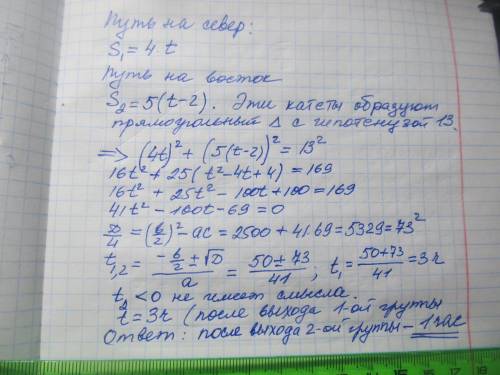 Путь на север:
S₁ = 4·t
Путь на восток
S₂ = 5(t-2). Эти катеты образуют
прямоугольный Δ с гипотенузой 13.
=> (4t)² + (5(t-2))² = 13²
16t² + 25(t² - 4t + 4) = 169
16t² + 25t² - 100t + 100 = 169
41t² - 100t - 69 = 0
D/4 = (b/2)² - ac = 2500 + 41·69 = 5329 = 73²
t₁,₂ = (-b/2 ± √D)/a = (50 ± 73)/41, t₁ = (50+73)/41 = 3ч
t₂ < 0 не имеет смысла.
t = 3ч (после выхода 1-ой группы
Ответ: после выхода 2-ой группы - 1 час